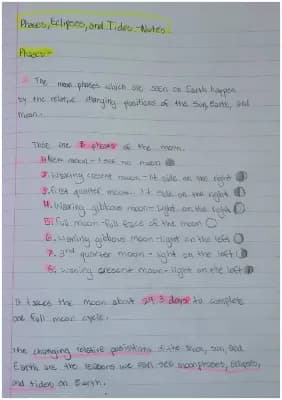 Phases, Eclipses, and Tides - Notes
Phases -
The moon phases which are seen on Earth happen
by the relative changing positions of the Sun, Earth, and
moon.
There are 8 phases of the moon.
1. New moon - I see no moon
2. Waxing crescent moon - lit side on the right
3. First quarter moon - lit side on the right
4. Waxing gibbous moon - light on the right
5. Full moon - full face of the moon
6. Waning gibbous moon - light on the left
7. 3rd quarter moon - light on the left
8. Waning crescent moon - light on the left
It takes the moon about 29.5 days to complete
one full moon cycle.
The changing relative positions of the moon, sun, and
Earth are the reasons we can see moon phases, eclipses,
and tides on Earth.